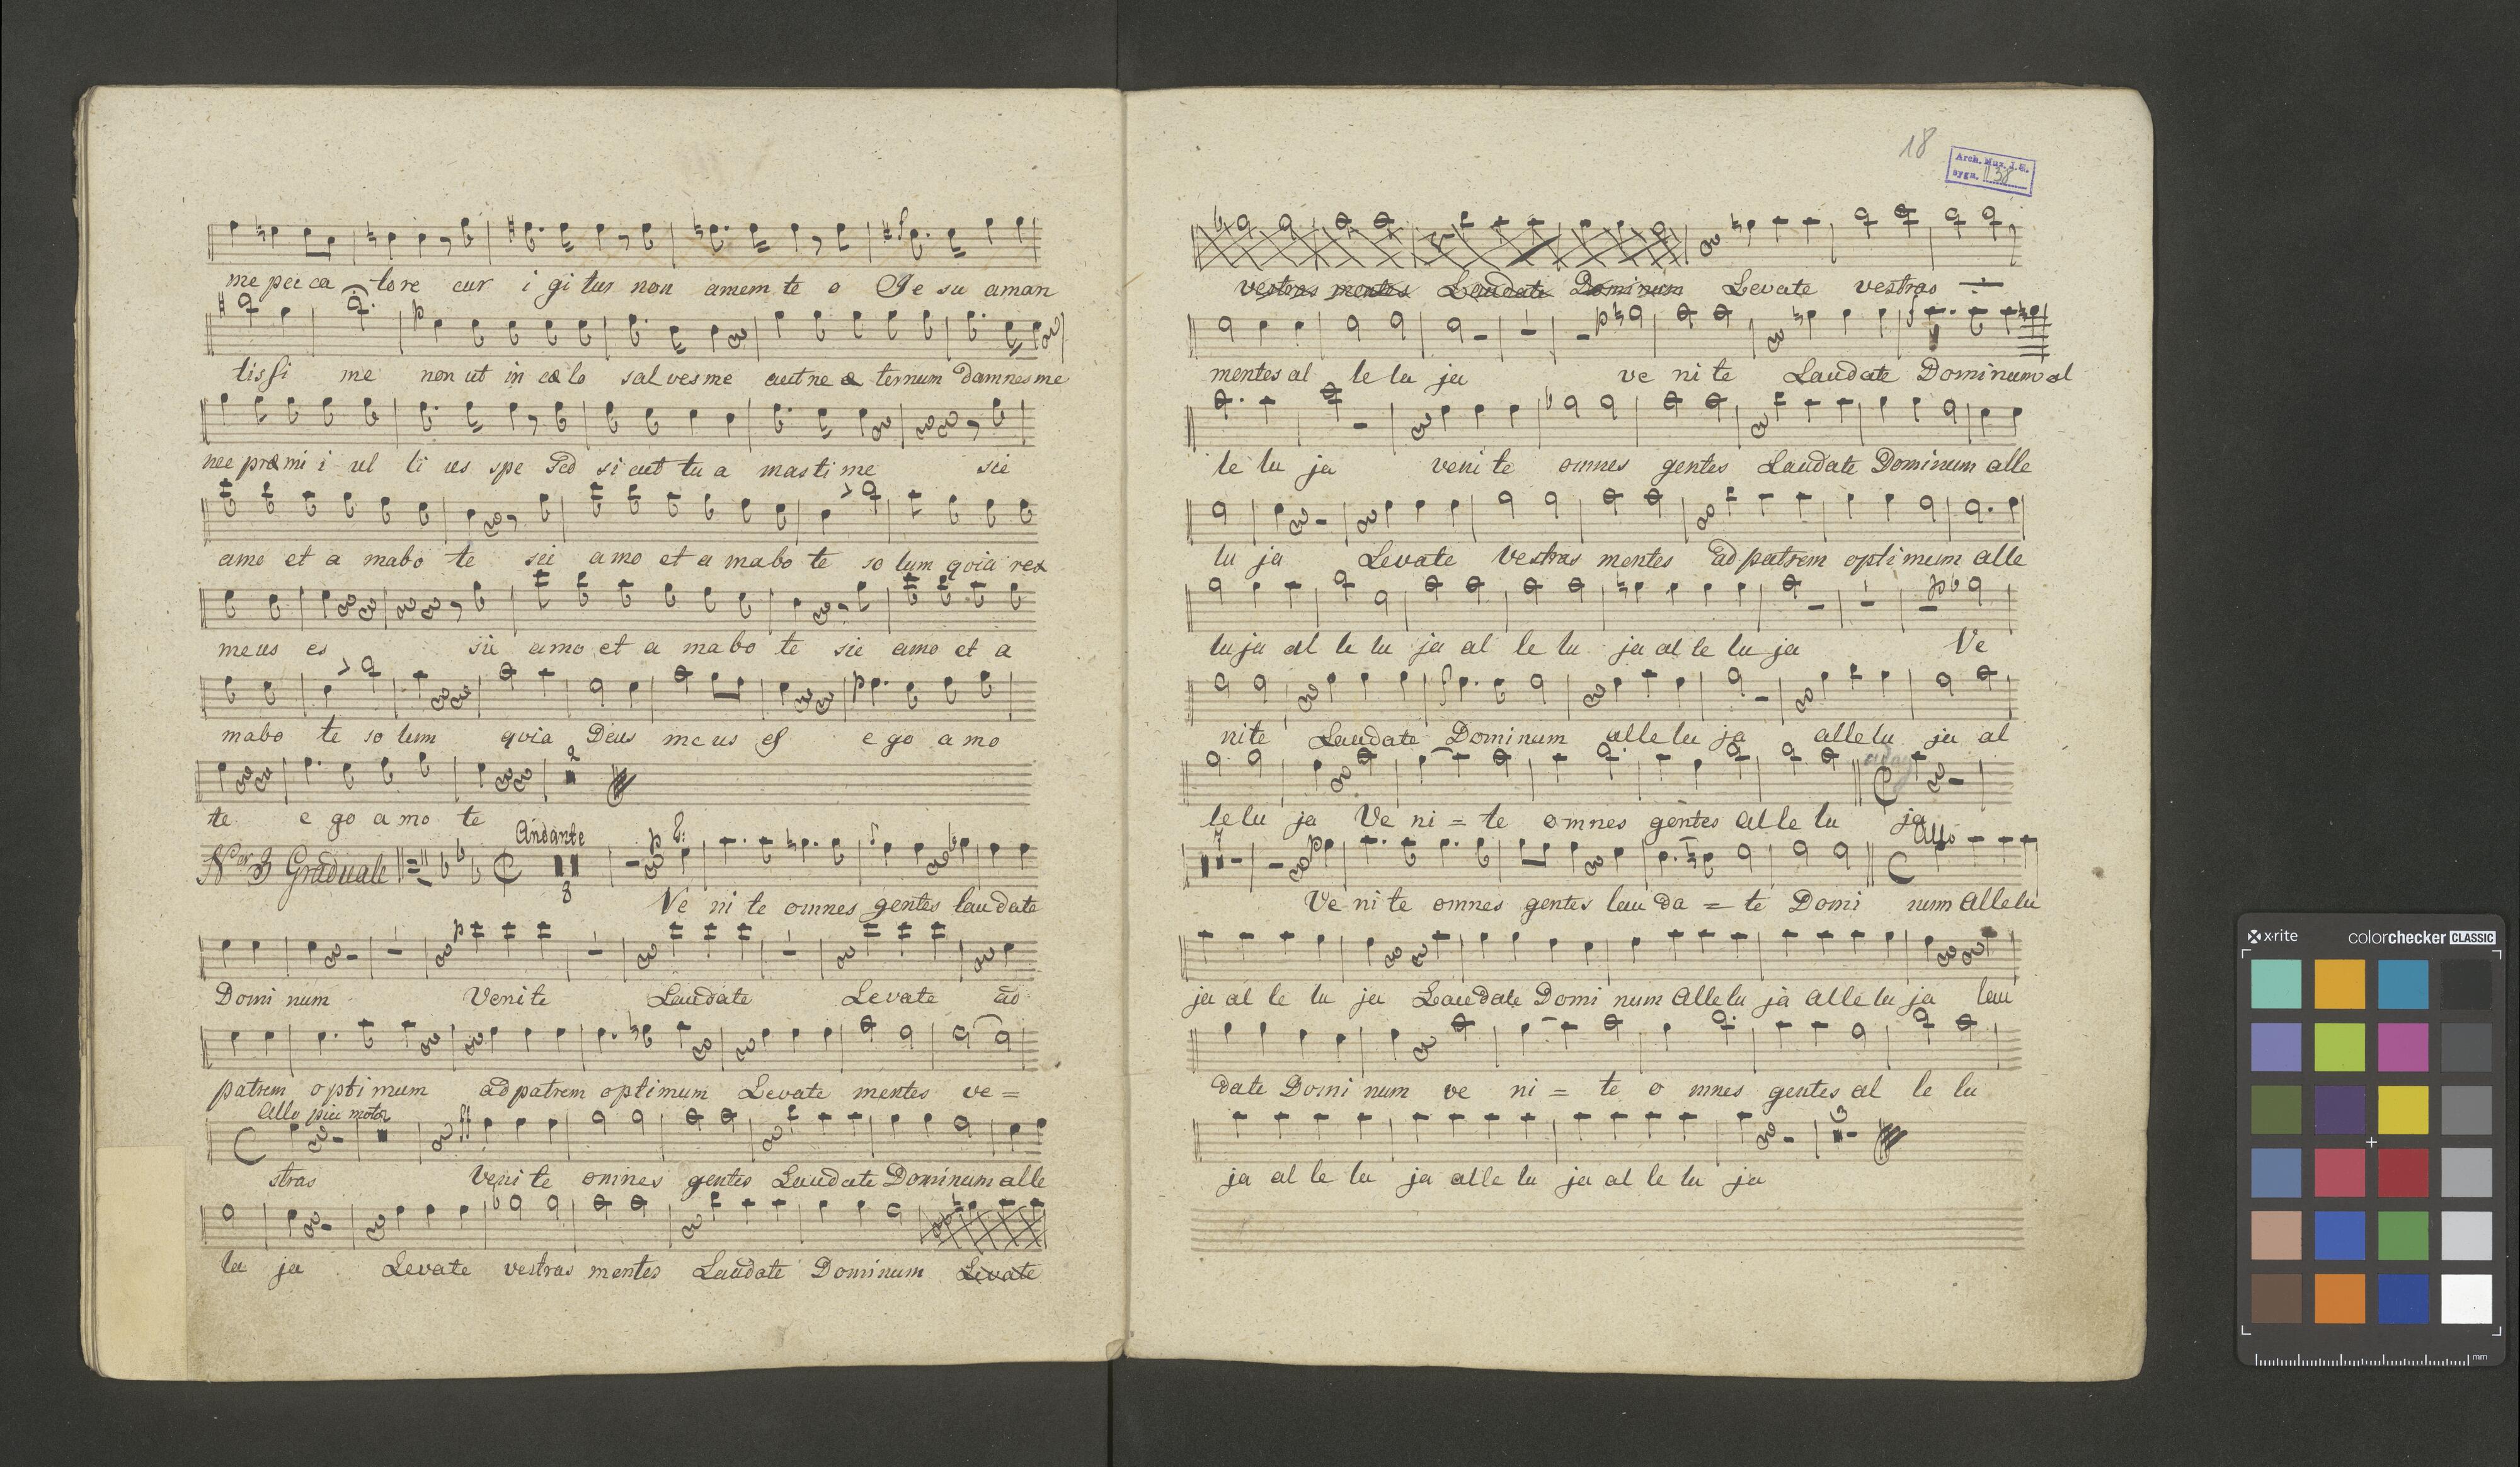 me pec ca tore cur i gi tur non amem te o Je su aman
tissi me non ut in cœ lo sal ves me aut ne æ ternum damnes me
nec præmi i ul li us spe Sed si cut tu a masti me sic
amo et a mabo te sic amo et a mabo te so lum quia rex
meus es sic amo et a ma bo te sic amo et a
mabo te so lum quia Deus me us es e go a mo
2
te e go a mo te
Andante
Nor 3 Graduale
8
Ve ni te omnes gentes lau date
Domi num Venite Laudate Levate ad
patrem optimum ad patrem optimum Levate mentes ve =
Allo piu moto
stras veni te omnes gentes Laudate Dominum alle
lu ja Levate vestras mentes Laudate Dominum Levate
18
Arch. Muz. J.G.
sygn. 138
vestras mentes Laudate Dominum Levate vestras
mentes al le lu ja ve ni te Laudate Dominum al
le lu ja veni te omnes gentes Laudate Dominum alle
lu ja Levate vestras mentes ad patrem optimum alle
lu ja al le lu ja al le lu ja al le lu ja Ve
nite Laudate Dominum allelu ja allelu ja al
adag
lelu ja Ve ni = te omnes gentes al le lu ja
7
Allo
Ve ni te omnes gentes lau da = te Domi num Allelu
ja al le lu ja Laudate Domi num Allelu ja Allelu ja lau
date Domi num ve ni = te o mnes gentes al le lu
3
ja al le lu ja alle lu ja al le lu ja
x-rite
colorchecker CLASSIC
mm